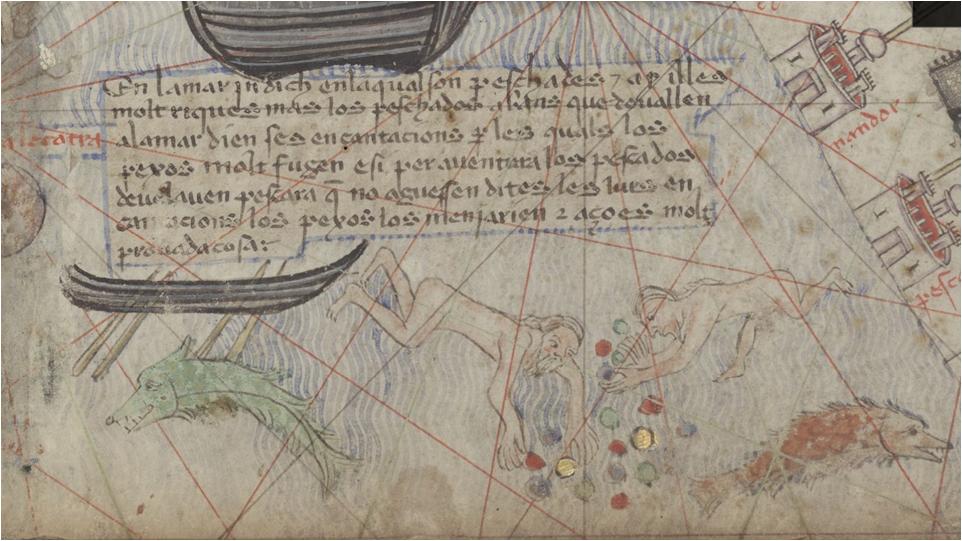 En la mar indich en la qual son peschades 7 ay illes
molt riques mas los peschados abans que devallen
a la mar dien ses encantacions per les quals los
pexos molt fugen e si per aventura los pescados
devalaven pescar a q̄ no aguessen dites les lurs en
cantacions los pexos los menjarien 2 açó es molt
provada cosa
nandor